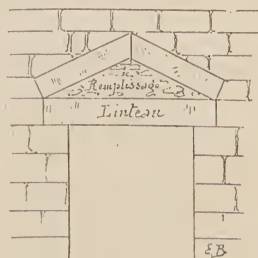 Remplissage
Linteau
E.B